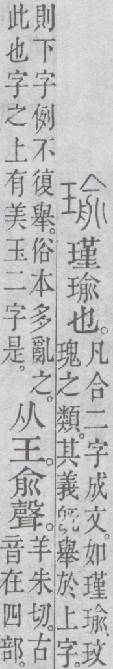 瑜 瑾瑜也。
凡合二字成文。如瑾瑜玫
瑰之類。其義旣舉於上字。
則下字例不復舉。俗本多亂之。
此也字之上有美玉二字是。
从王。俞聲。
羊朱切。古
音在四部。